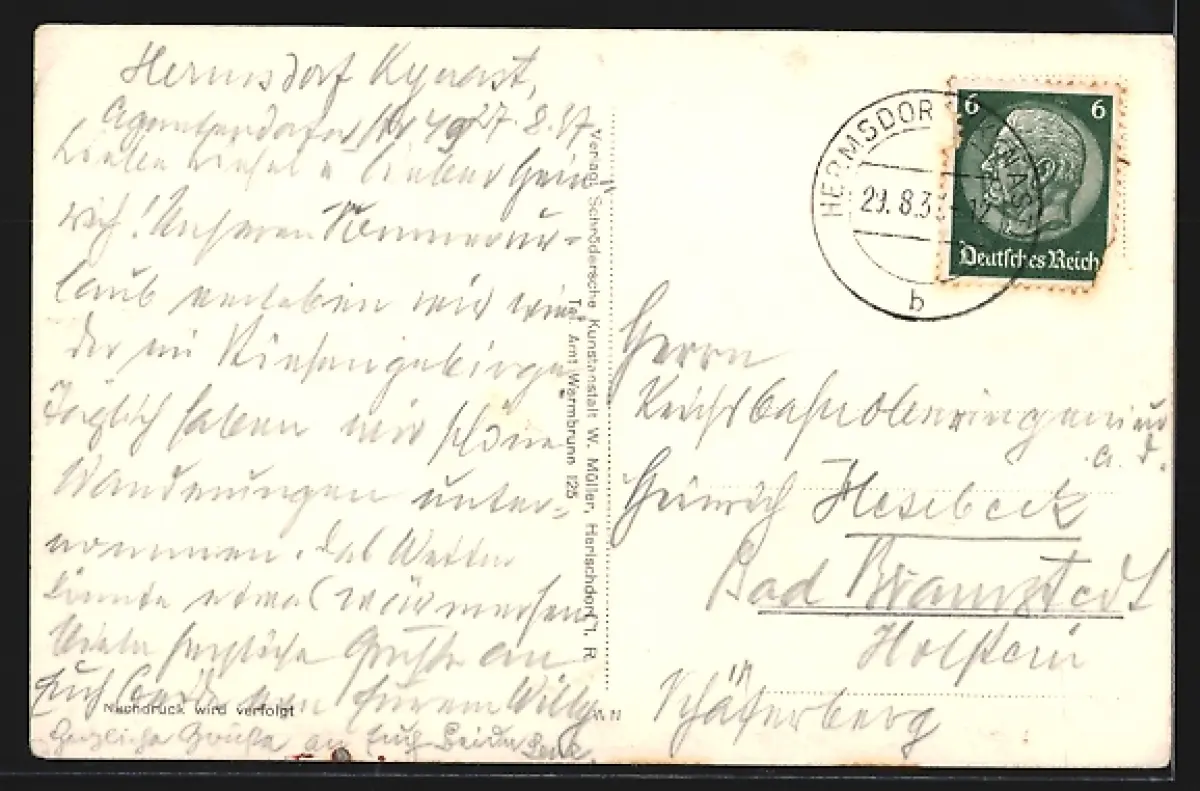 Hermsdorf Kynast,
27.8.37.
Liebe Liesel u lieber Hein
rich! Unseren Sommerur-
laub verleben wir wie
der im Riesengebirge
Täglich haben wir schöne
Wanderungen unter-
nommen. Das Wetter
könnte etwas wärmer sein
Viele herzliche Grüße an
Euch beide von Eurem Willy
Herzliche Grüße an Euch Beide
Nachdruck wird verfolgt
Verlag: Schrödersche Kunstanstalt W. Müller, Herischdorf i. R.
Tel. Amt Warmbrunn 125
HERMSDORF (KYNAST)
29.8.3
b
6 6
Deutsches Reich
Herrn
a. D.
Heinrich Hesebeck
Bad Bramstedt
Holstein
Schäferberg